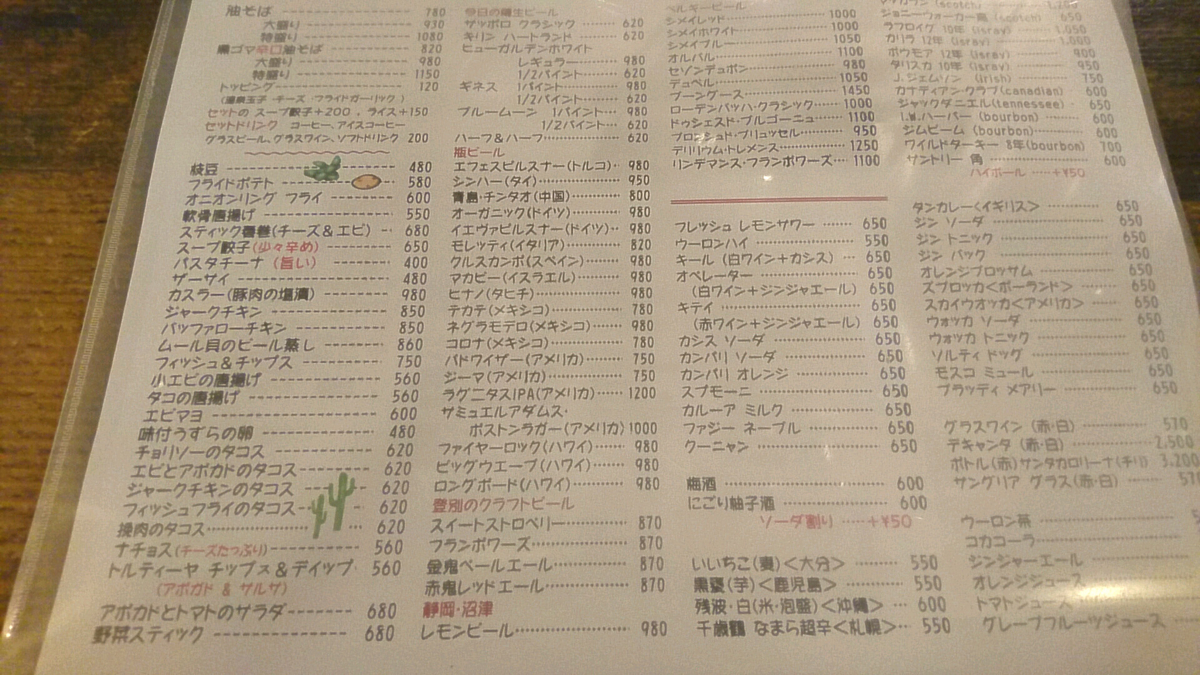 油そば 780
大盛り 930
特盛り 1080
黒ゴマ辛口油そば 820
大盛り 980
特盛り 1150
トッピング 120
(温泉玉子 チーズ フライドガーリック)
セットの スープ餃子+200 、ライス+150
セットドリンク コーヒー、アイスコーヒー
グラスビール、グラスワイン、ソフトドリンク 200
枝豆 480
フライドポテト 580
オニオンリング フライ 600
軟骨唐揚げ 550
スティック春巻(チーズ&エビ) 680
スープ餃子(少々辛め) 650
パスタチーナ (旨い) 400
ザーサイ 480
カスラー(豚肉の塩漬) 980
ジャークチキン 850
バッファローチキン 850
ムール貝のビール蒸し 860
フィッシュ&チップス 750
小エビの唐揚げ 560
タコの唐揚げ 560
エビマヨ 600
味付うずらの卵 480
チョリソーのタコス 620
エビとアボカドのタコス 620
ジャークチキンのタコス 620
フィッシュフライのタコス 620
挽肉のタコス 620
ナチョス(チーズたっぷり) 560
トルティーヤ チップス&ディップ 560
(アボガド & サルサ)
アボカドとトマトのサラダ 680
野菜スティック 680
今日の樽生ビール
サッポロ クラシック 620
キリン ハートランド 620
ヒューガルデンホワイト
レギュラー 980
1/2パイント 620
ギネス 1パイント 980
1/2パイント 620
ブルームーン 1パイント 980
1/2パイント 620
ハーフ&ハーフ 620
瓶ビール
エフェスピルスナー(トルコ) 980
シンハー(タイ) 950
青島・チンタオ(中国) 800
オーガニック(ドイツ) 980
イエヴァピルスナー(ドイツ) 980
モレッティ(イタリア) 820
クルスカンポ(スペイン) 980
マカビー(イスラエル) 980
ヒナノ(タヒチ) 980
テカテ(メキシコ) 780
ネグラモデロ(メキシコ) 980
コロナ(メキシコ) 780
バドワイザー(アメリカ) 750
ジーマ(アメリカ) 750
ラグニタスIPA(アメリカ) 1200
サミュエルアダムス・
ボストンラガー(アメリカ) 1000
ファイヤーロック(ハワイ) 980
ビッグウエーブ(ハワイ) 980
ロングボード(ハワイ) 980
登別のクラフトビール
スイートストロベリー 870
フランボワーズ 870
金鬼ペールエール 870
赤鬼レッドエール 870
静岡・沼津
レモンビール 980
ベルギービール
シメイレッド 1000
シメイホワイト 1000
シメイブルー 1050
オルバル 1100
セゾンデュポン 980
デュベル 1050
グーンゲース 1450
ローデンバッハ・クラシック 1000
ドゥシェスド・ブルゴーニュ 1100
ブロンシュド・ブリュッセル 950
デリリウム・トレメンス 1250
リンデマンス・フランボワーズ 1100
フレッシュ レモンサワー 650
ウーロンハイ 550
キール (白ワイン+カシス) 650
オペレーター
(白ワイン+ジンジャエール) 650
キティ
(赤ワイン+ジンジャエール) 650
カシス ソーダ 650
カンパリ ソーダ 650
カンパリ オレンジ 650
スプモーニ 650
カルーア ミルク 650
ファジー ネーブル 650
クーニャン 650
梅酒 600
にごり柚子酒 600
ソーダ割り +¥50
いいちこ(麦)<大分> 550
黒甕(芋)<鹿児島> 550
残波・白(米・泡盛)<沖縄> 600
千歳鶴 なまら超辛<札幌> 550
ジョニーウォーカー黒 (scotch) 650
ラフロイグ 10年 (isray) 1,050
カリラ 12年 (isray) 1,000
ボウモア 12年 (isray) 900
タリスカ 10年 (isray) 950
J.ジェムソン (irish) 750
カナディアンクラブ(canadian) 600
ジャックダニエル(tennessee) 650
I.W.ハーパー (bourbon) 600
ジムビーム (bourbon) 600
ワイルドターキー 8年(bourbon) 700
サントリー 角 600
ハイボール +¥50
タンカレー<イギリス> 650
ジン ソーダ 650
ジン トニック 650
ジン バック 650
オレンジブロッサム 650
ズブロッカ<ポーランド> 650
スカイウオッカ<アメリカ> 650
ウォッカ ソーダ 650
ウォッカ トニック 650
ソルティ ドッグ 650
モスコ ミュール 650
ブラッディ メアリー 650
グラスワイン (赤・白) 570
デキャンタ (赤・白) 2,500
ボトル(赤)サンタカロリーナ(チリ) 3,200
サングリア グラス(赤・白) 57
ウーロン茶
コカコーラ
ジンジャーエール
オレンジジュース
トマトジュース
グレープフルーツジュース